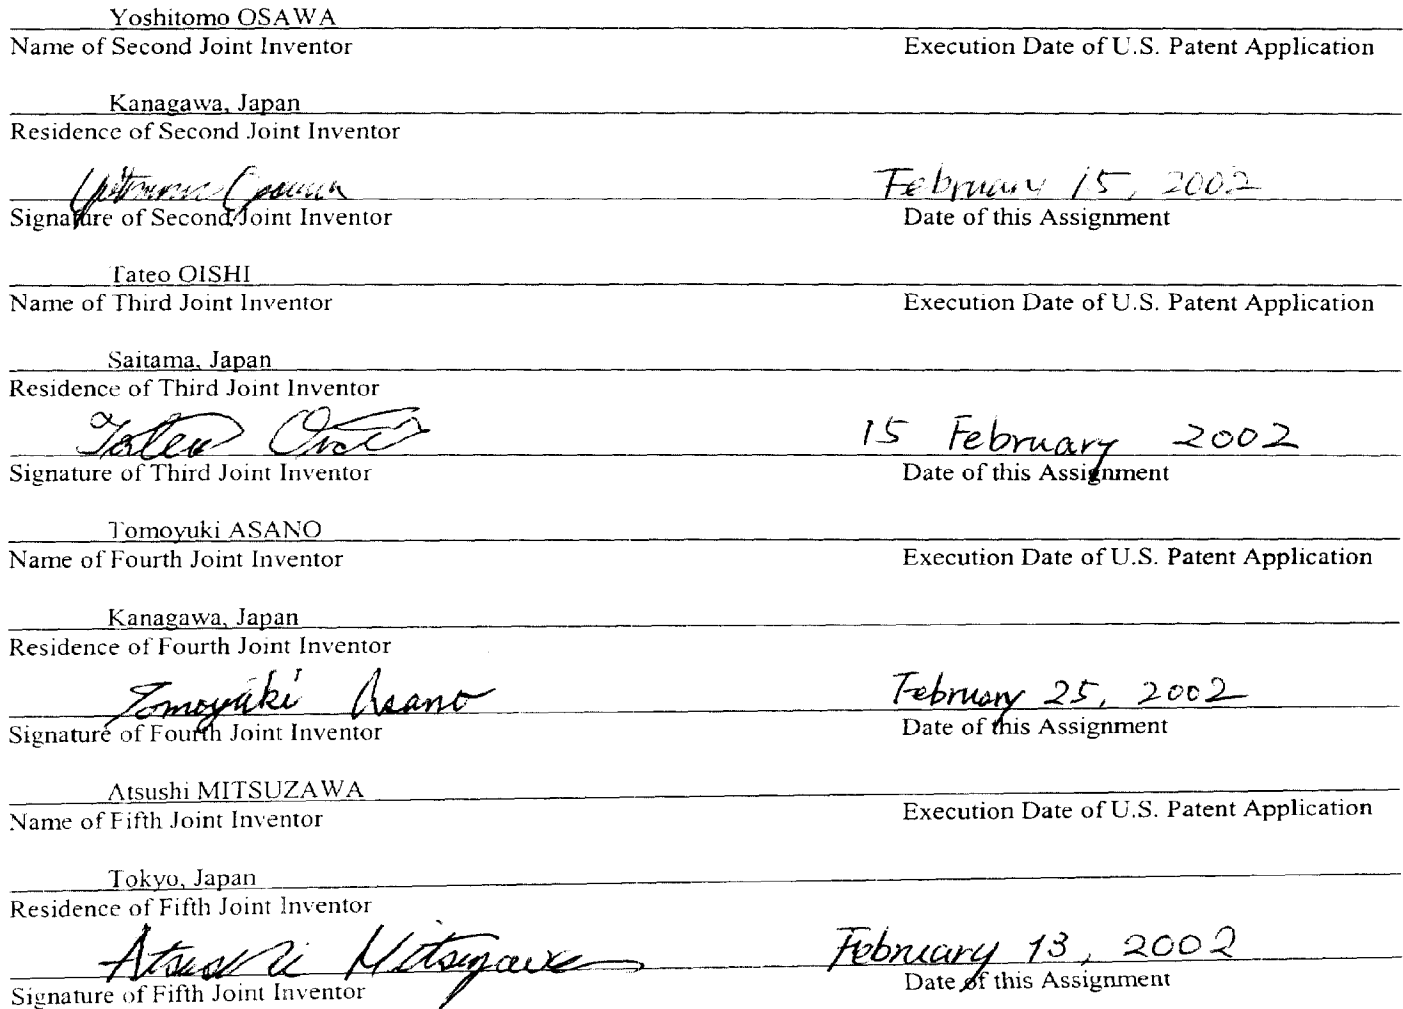 Yoshitomo OSAWA
Name of Second Joint Inventor Execution Date of U.S. Patent Application
Kanagawa, Japan
Residence of Second Joint Inventor
February 15, 2002
Signature of Second Joint Inventor Date of this Assignment
Tateo OISHI
Name of Third Joint Inventor Execution Date of U.S. Patent Application
Saitama, Japan
Residence of Third Joint Inventor
Tateo Oishi 15 February 2002
Signature of Third Joint Inventor Date of this Assignment
Tomoyuki ASANO
Name of Fourth Joint Inventor Execution Date of U.S. Patent Application
Kanagawa, Japan
Residence of Fourth Joint Inventor
Tomoyuki Asano February 25, 2002
Signature of Fourth Joint Inventor Date of this Assignment
Atsushi MITSUZAWA
Name of Fifth Joint Inventor Execution Date of U.S. Patent Application
Tokyo, Japan
Residence of Fifth Joint Inventor
Atsushi Mitsuzawa February 13, 2002
Signature of Fifth Joint Inventor Date of this Assignment